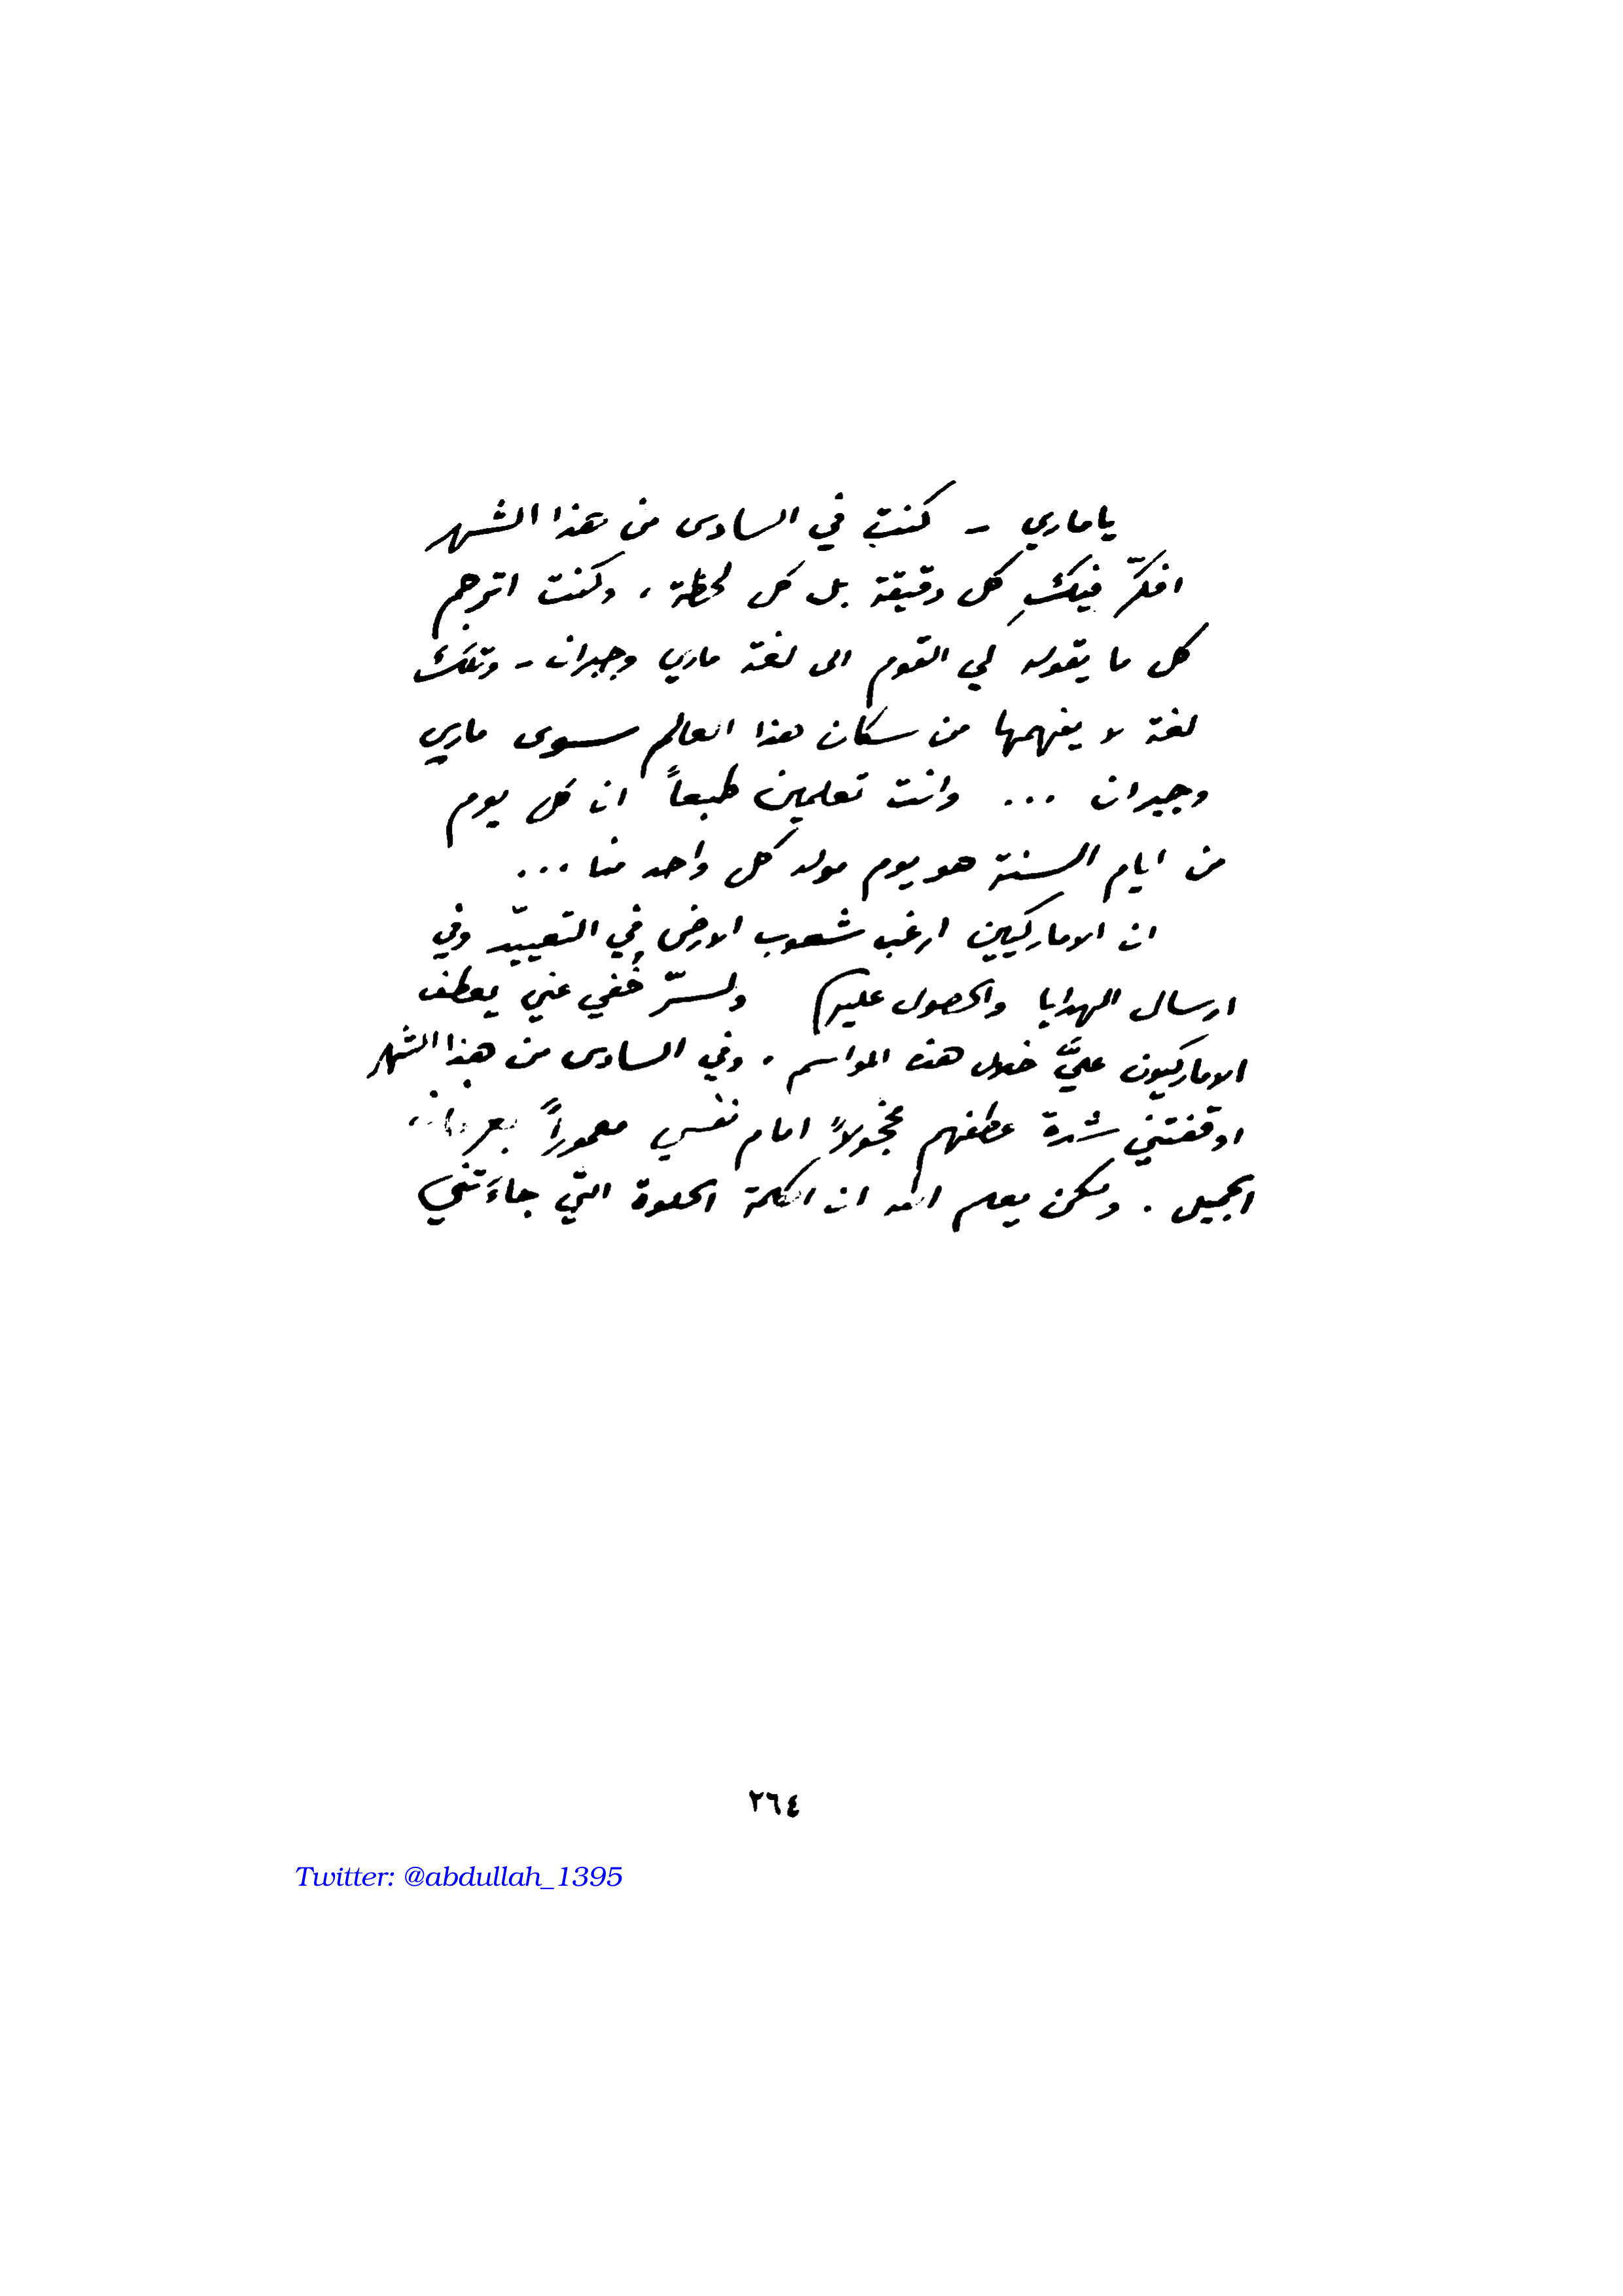 يا ماري - كنت في السادس من هذا الشهر
افكّر فيكِ كل دقيقة بل كل لحظة ، وكنت اترجم
كل ما يقوله لي القوم الى لغة ماري وجبران - وتلك
لغة لا يفهمها من سكان هذا العالم سوى ماري
وجبران ... وانت تعلمين طبعاً ان كل يوم
من ايام السنة هو يوم مولد كل واحد منا ...
ان الاماركيين ارغب شعوب الارض في التعييّد وفي
ارسال الهدايا والحصول عليها ولسرّ خفي عني يعطف
الاماركيون عليَّ خلال هذه المواسم . وفي السادس من هذا الشهر
اوقفتني شدة عطفهم مخجولاً امام نفسي مغموراً
الجميل . ولكن يعلم الله ان الكلمة الحلوة التي جاءَتني
٢٦٤
Twitter: @abdullah_1395